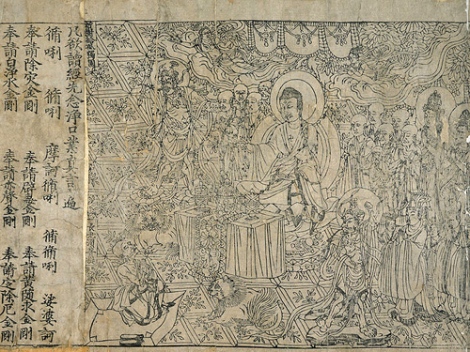 凡欲讀經先念淨口業真言一遍
脩唎 脩唎 摩訶脩唎 脩脩唎 娑婆訶
奉請除灾金剛 奉請辟毒金剛 奉請黃隨求金剛
奉請白淨水金剛 奉請赤聲金剛 奉請定除厄金剛